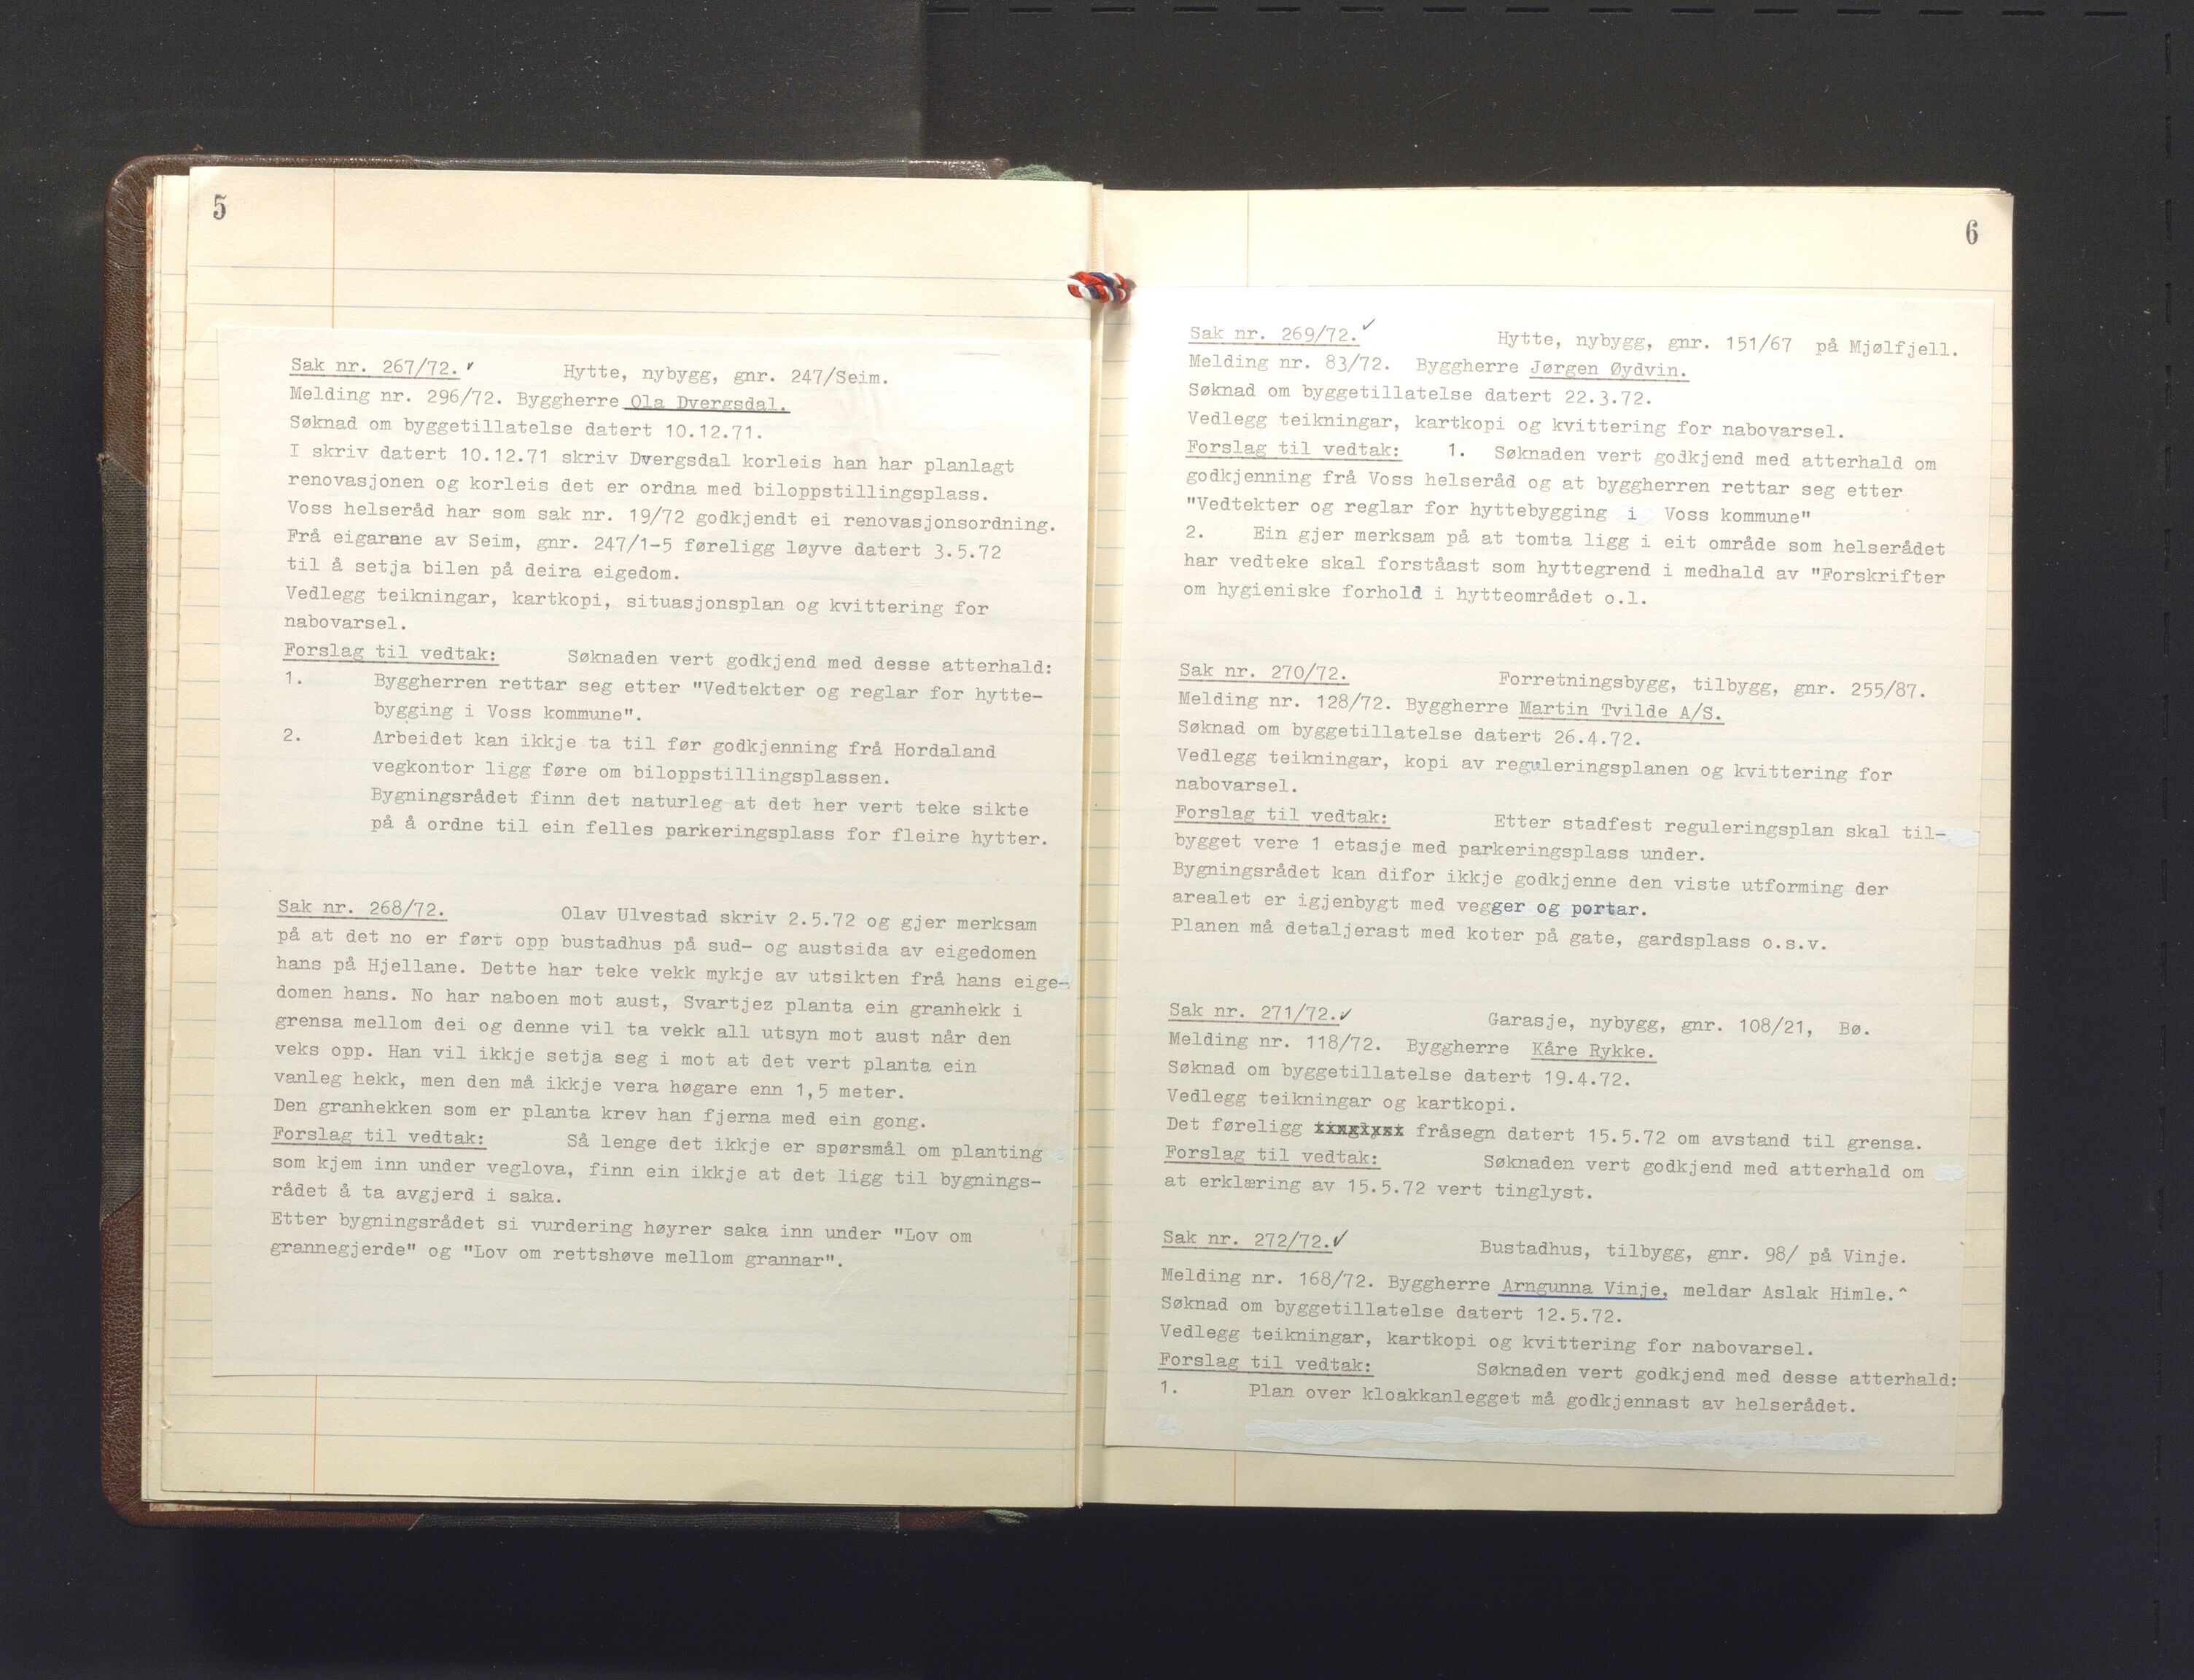 5
Sak nr. 267/72. ✓ Hytte, nybygg, gnr. 247/Seim.
Melding nr. 296/72. Byggherre Ola Dvergsdal.
Søknad om byggetillatelse datert 10.12.71.
I skriv datert 10.12.71 skriv Dvergsdal korleis han har planlagt
renovasjonen og korleis det er ordna med biloppstillingsplass.
Voss helseråd har som sak nr. 19/72 godkjendt ei renovasjonsordning.
Frå eigarane av Seim, gnr. 247/1-5 føreligg løyve datert 3.5.72
til å setja bilen på deira eigedom.
Vedlegg teikningar, kartkopi, situasjonsplan og kvittering for
nabovarsel.
Forslag til vedtak: Søknaden vert godkjend med desse atterhald:
1. Byggherren rettar seg etter "Vedtekter og reglar for hytte-
bygging i Voss kommune".
2. Arbeidet kan ikkje ta til før godkjenning frå Hordaland
vegkontor ligg føre om biloppstillingsplassen.
Bygningsrådet finn det naturleg at det her vert teke sikte
på å ordne til ein felles parkeringsplass for fleire hytter.
Sak nr. 268/72. Olav Ulvestad skriv 2.5.72 og gjer merksam
på at det no er ført opp bustadhus på sud- og austsida av eigedomen
hans på Hjellane. Dette har teke vekk mykje av utsikten frå hans eige-
domen hans. No har naboen mot aust, Svartjez planta ein granhekk i
grensa mellom dei og denne vil ta vekk all utsyn mot aust når den
veks opp. Han vil ikkje setja seg i mot at det vert planta ein
vanleg hekk, men den må ikkje vera høgare enn 1,5 meter.
Den granhekken som er planta krev han fjerna med ein gong.
Forslag til vedtak: Så lenge det ikkje er spørsmål om planting
som kjem inn under veglova, finn ein ikkje at det ligg til bygnings-
rådet å ta avgjerd i saka.
Etter bygningsrådet si vurdering høyrer saka inn under "Lov om
grannegjerde" og "Lov om rettshøve mellom grannar".
6
Sak nr. 269/72. ✓ Hytte, nybygg, gnr. 151/67 på Mjølfjell.
Melding nr. 83/72. Byggherre Jørgen Øydvin.
Søknad om byggetillatelse datert 22.3.72.
Vedlegg teikningar, kartkopi og kvittering for nabovarsel.
Forslag til vedtak: 1. Søknaden vert godkjend med atterhald om
godkjenning frå Voss helseråd og at byggherren rettar seg etter
"Vedtekter og reglar for hyttebygging i Voss kommune"
2. Ein gjer merksam på at tomta ligg i eit område som helserådet
har vedteke skal forståast som hyttegrend i medhald av "Forskrifter
om hygieniske forhold i hytteområdet o.l.
Sak nr. 270/72. Forretningsbygg, tilbygg, gnr. 255/87.
Melding nr. 128/72. Byggherre Martin Tvilde A/S.
Søknad om byggetillatelse datert 26.4.72.
Vedlegg teikningar, kopi av reguleringsplanen og kvittering for
nabovarsel.
Forslag til vedtak: Etter stadfest reguleringsplan skal til-
bygget vere 1 etasje med parkeringsplass under.
Bygningsrådet kan difor ikkje godkjenne den viste utforming der
arealet er igjenbygt med vegger og portar.
Planen må detaljerast med koter på gate, gardsplass o.s.v.
Sak nr. 271/72. ✓ Garasje, nybygg, gnr. 108/21, Bø.
Melding nr. 118/72. Byggherre Kåre Rykke.
Søknad om byggetillatelse datert 19.4.72.
Vedlegg teikningar og kartkopi.
Det føreligg fråsegn datert 15.5.72 om avstand til grensa.
Forslag til vedtak: Søknaden vert godkjend med atterhald om
at erklæring av 15.5.72 vert tinglyst.
Sak nr. 272/72. ✓ Bustadhus, tilbygg, gnr. 98/ på Vinje.
Melding nr. 168/72. Byggherre Arngunna Vinje, meldar Aslak Himle.^
Søknad om byggetillatelse datert 12.5.72.
Vedlegg teikningar, kartkopi og kvittering for nabovarsel.
Forslag til vedtak: Søknaden vert godkjend med desse atterhald:
1. Plan over kloakkanlegget må godkjennast av helserådet.